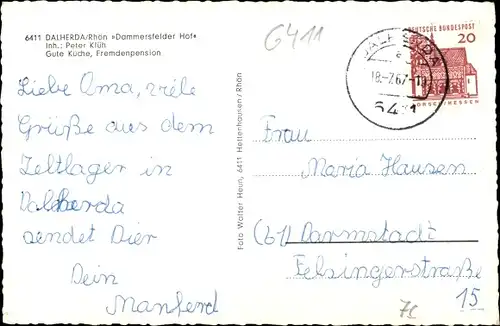 6411 DALHERDA/Rhön »Dammersfelder Hof«
Inh.: Peter Klüh
Gute Küche, Fremdenpension
6411
DALHERDA
18.-7.67.-10
6411
DEUTSCHE BUNDESPOST
20
LORSCH/HESSEN
Liebe Oma, viele
Grüße aus dem
Zeltlager in
Dalherda
sendet Dier
Dein
Manferd
Foto Walter Heun, 6411 Hettenhausen/Rhön
Frau
Maria Hausen
(61) Darmstadt
Felsingerstraße
15